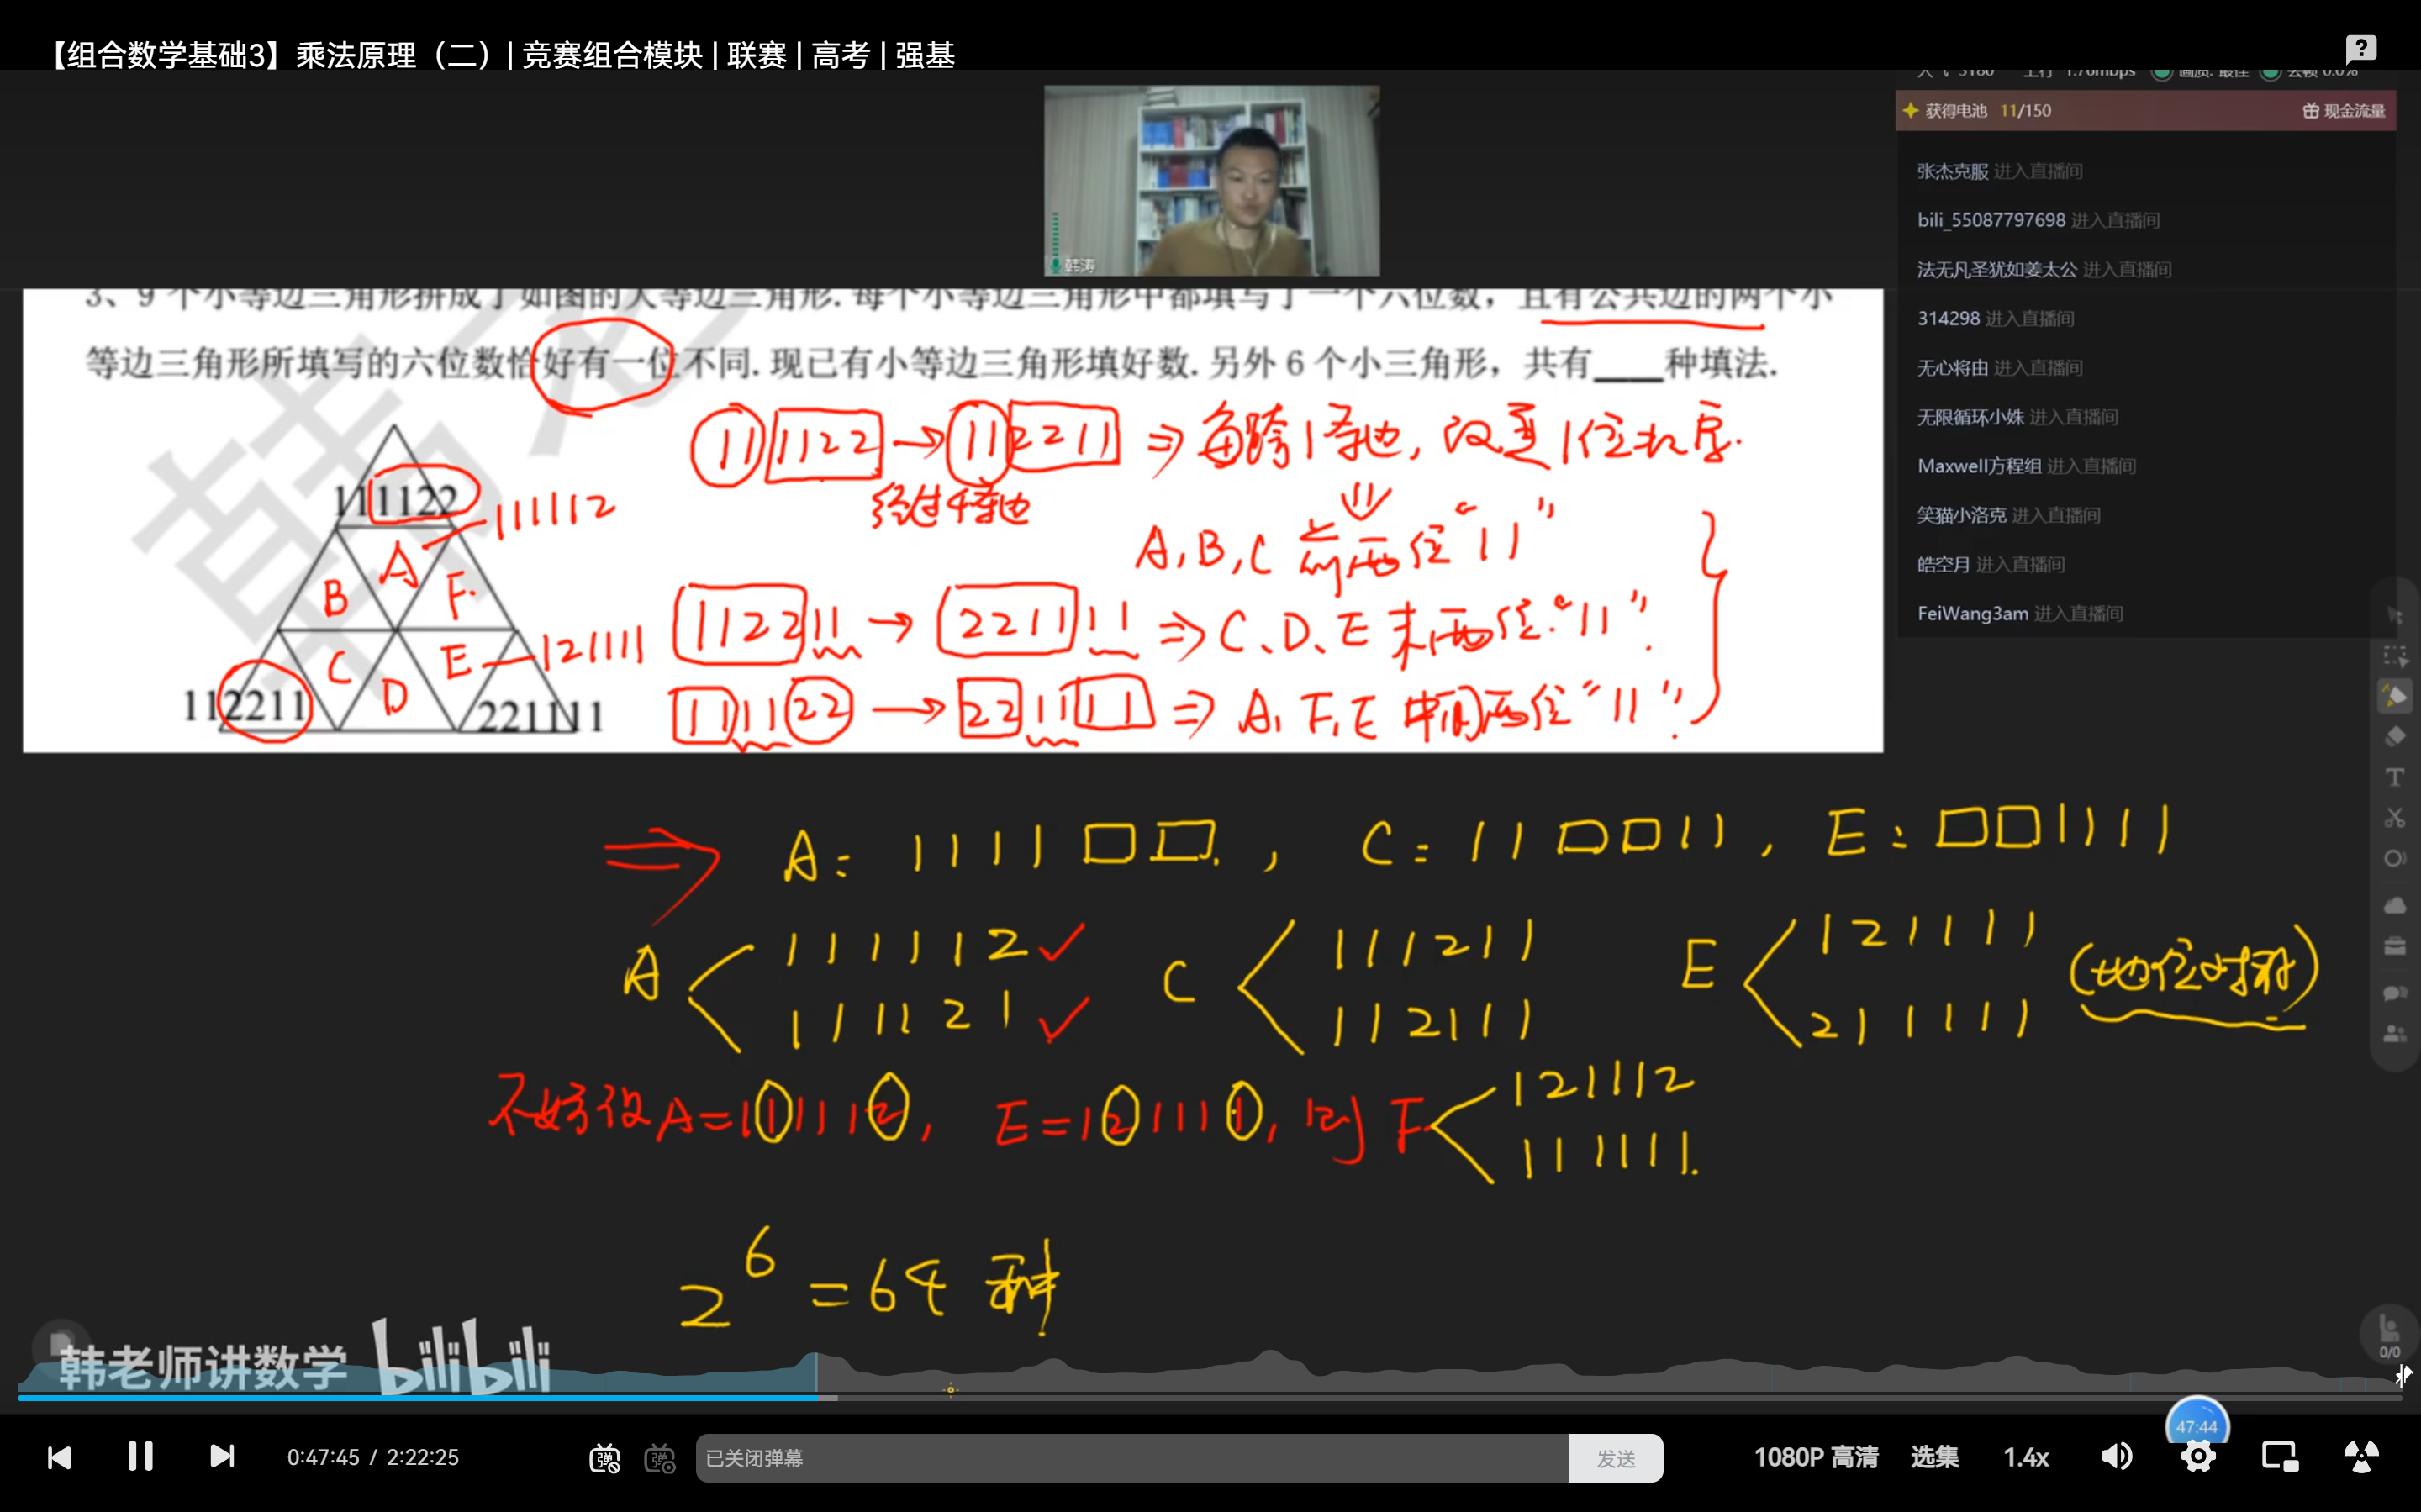 【组合数学基础3】乘法原理（二）| 竞赛组合模块 | 联赛 | 高考 | 强基
人气 5180 上行 1.76mbps 画质: 最佳 丢帧 0.0%
获得电池 11/150 现金流量
张杰克服 进入直播间
bili_55087797698 进入直播间
法无凡圣犹如姜太公 进入直播间
314298 进入直播间
无心将由 进入直播间
无限循环小姝 进入直播间
Maxwell方程组 进入直播间
笑猫小洛克 进入直播间
皓空月 进入直播间
FeiWang3am 进入直播间
韩涛
3、9 个小等边三角形拼成了如图的大等边三角形. 每个小等边三角形中都填写了一个六位数，且有公共边的两个小
等边三角形所填写的六位数恰好有一位不同. 现已有小等边三角形填好数. 另外 6 个小三角形，共有____种填法.
111122
111112
A
B
F.
C
D
E
121111
112211
221111
11 1122 → 11 2211 ⇒ 每跨1条边, 改变1位数字.
经过4条边
⇓
A, B, C 前两位 “11”
112211 → 221111 ⇒ C、D、E 末两位“11”.
111122 → 221111 ⇒ A, F, E 中间两位“11”.
⇒ A: 1111□□. , C: 11□□11 , E: □□1111
A < 111112 ✓
111121 ✓
C < 111211
112111
E < 121111
211111
(地位对称)
不妨设A=111112, E=121111, 则 F < 121112
111111.
2⁶ = 64 种
韩老师讲数学 bilibili
0/0
47:44
0:47:45 / 2:22:25
弹
弹
已关闭弹幕
发送
1080P 高清
选集
1.4x